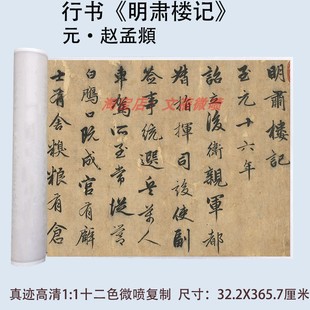 行书《明肃楼记》
元·赵孟頫
明肅樓記
至元十六年
詔立後衛親軍都
指揮司設使副
簽事統選兵萬人
車駕所至常從焉
白鴈口既成官有廨
士有舍糗粮有倉
真迹高清1:1十二色微喷复制 尺寸：32.2X365.7厘米